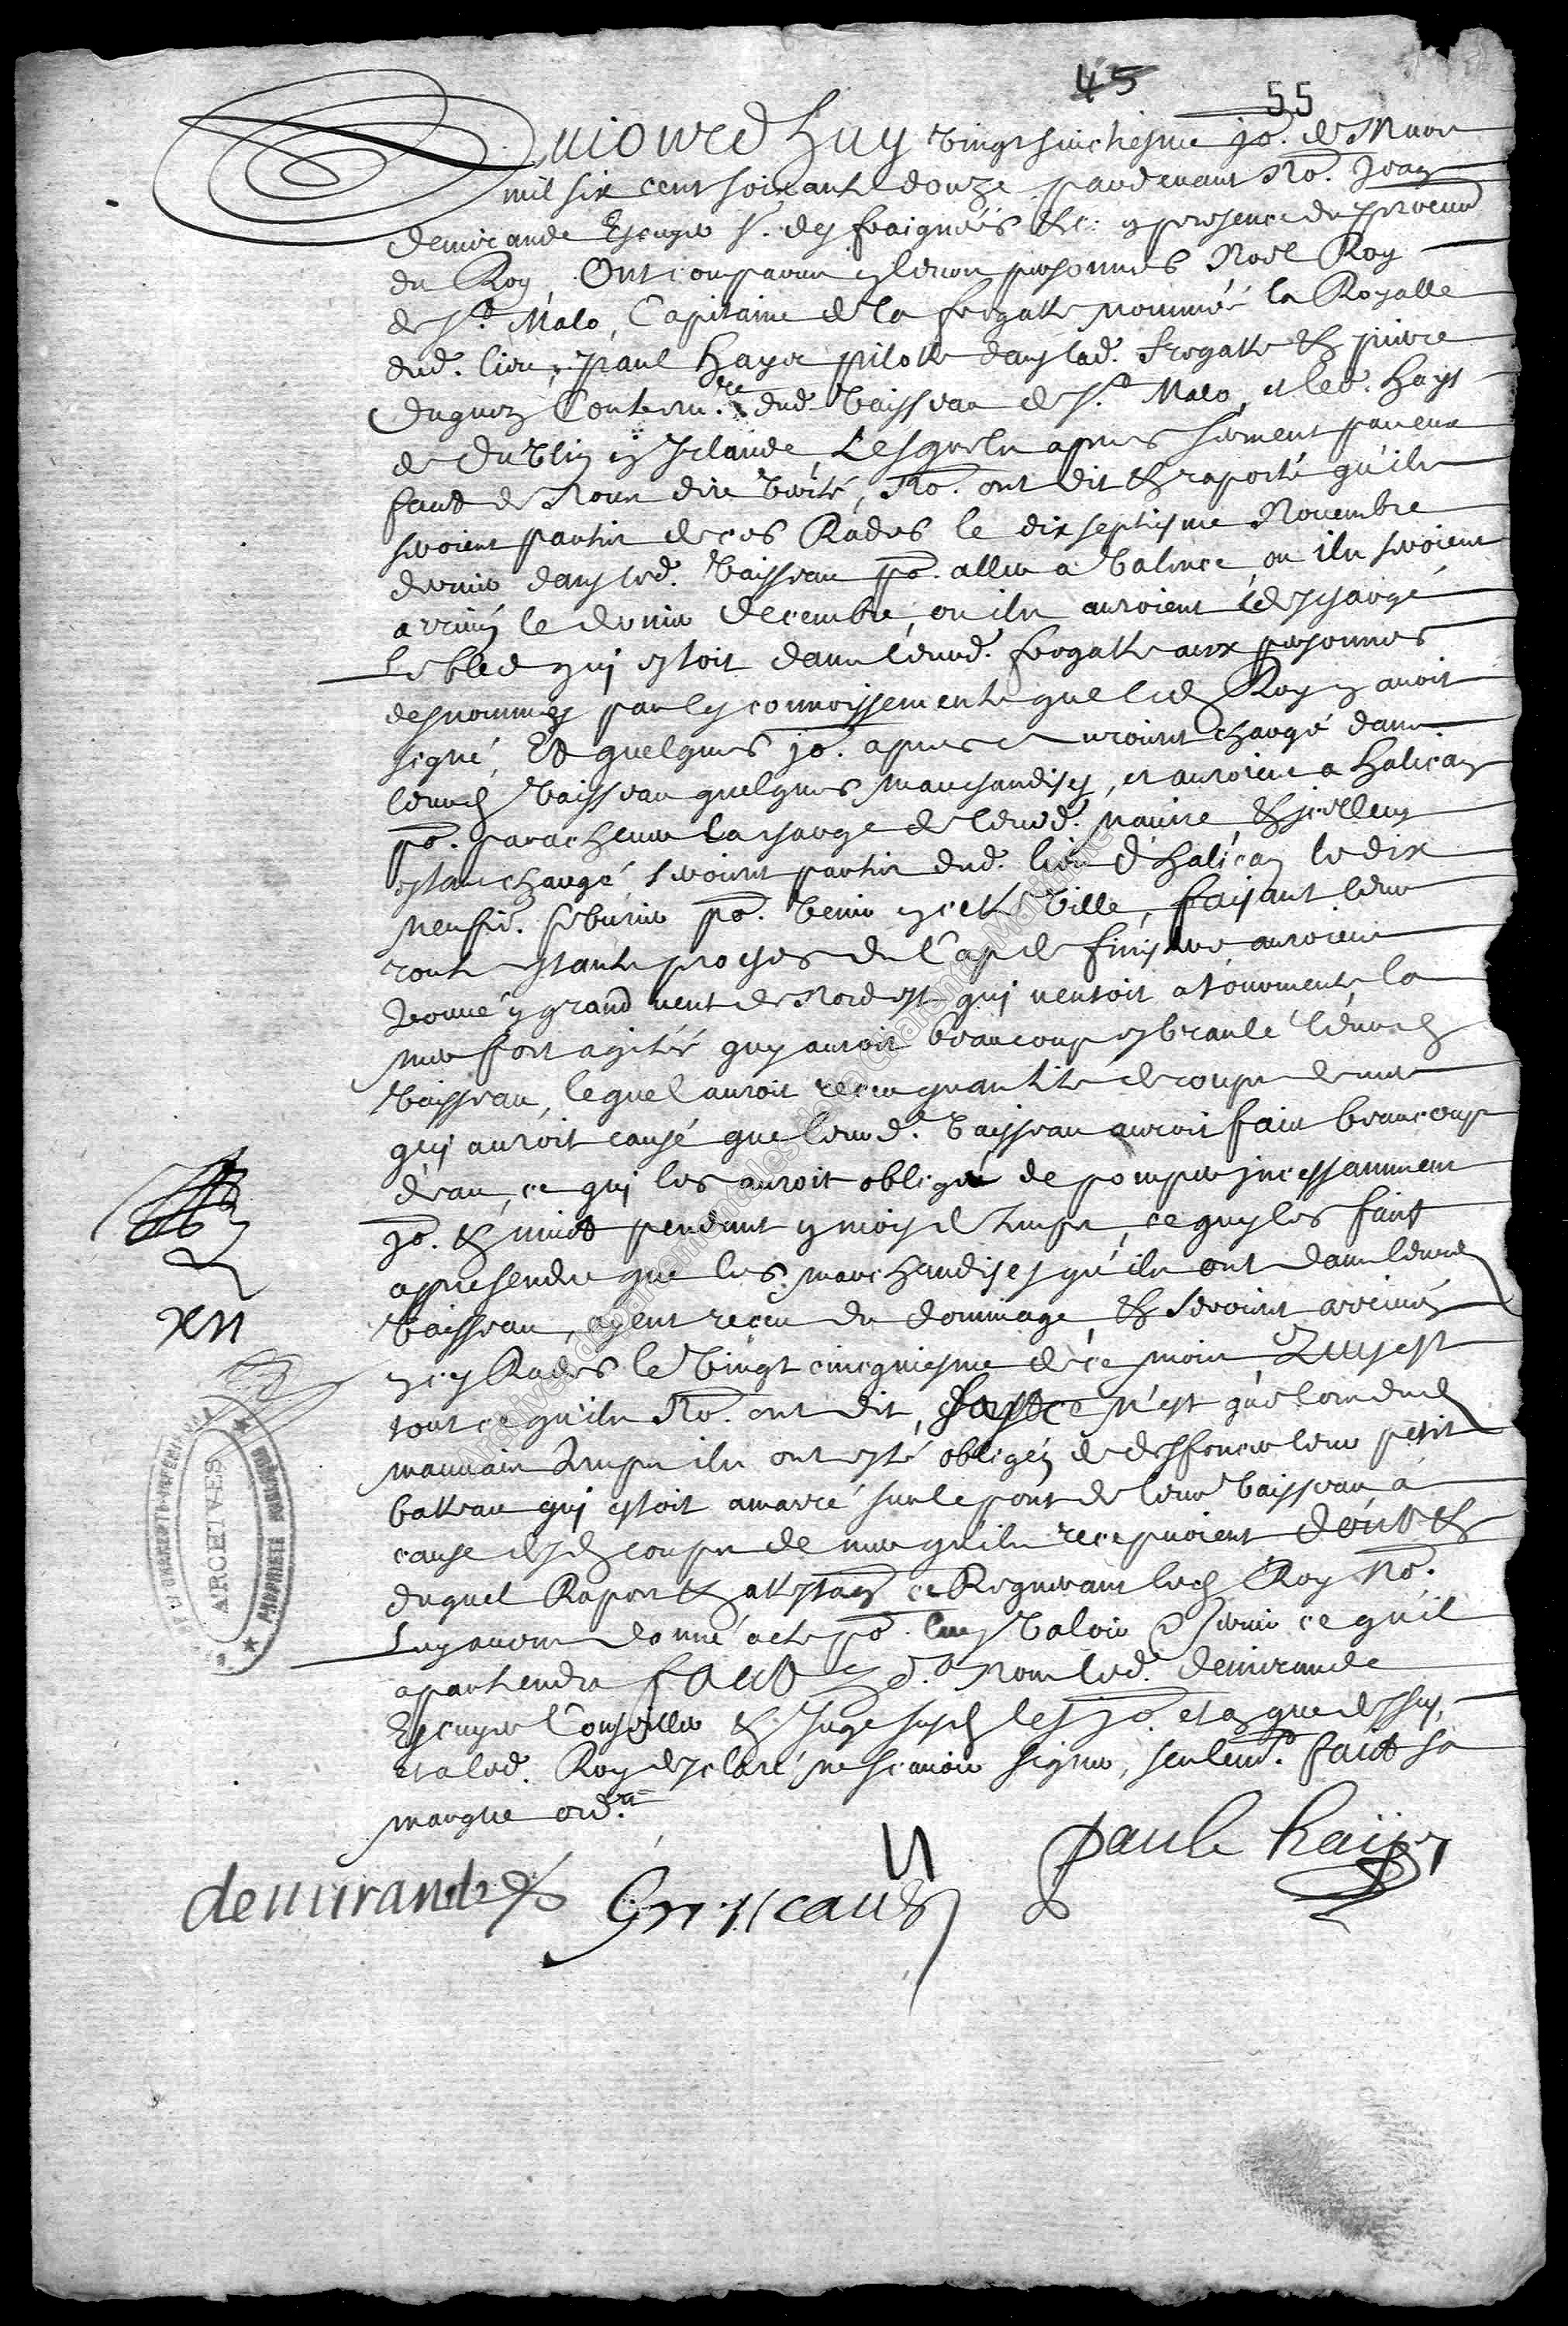 45
55
Aujourd huy vingt huictiesme jo. de Mars
mil six cent soixante douze pardevant No. Jean
demirande Escuyer Sr. des fraignées &c. en presence du procureur
du Roy, Ont comparu en leurs personnes Noel Roy
de St. Malo, Capitaine de la fregatte nommée la Royalle
dud. lieu, paul Hayer pilotte dans lad. fregatte & pierre
Contrem.re dud. vaisseau de St. Malo, et led. Hayer
de Dublin en Irlande, Lesquels apres serment par eux
faict de Nous dire verité, No. ont dit & raporté qu'ils
seroient partis de ces Rades le dix septiesme Novembre
dernier dans led. vaisseau po. aller a valence, ou ils seroient
arrivés le dernier decembre, ou ils auroient deschargé
Le bled qui estoit dans leurd. fregatte aux personnes
desnommés par les connoissements que led. Roy en avoit
signé, Et quelques jo. apres auroient chargé dans
leurd. vaisseau quelques marchandises, et auroient a halican
po. parachever la charge de leurd. navire, & icelluy
estant chargé, seroient partis dud. lieu d'halican le dix
neufie. febvrier po. venir en cette ville, faisant leur
route estants proches du Cap de finistere auroient
trouvé un grand vent de Nordest qui ventoit a tourmente la
mer fort agitée quy auroit beaucoup esbranlé leurd.
vaisseau, lequel auroit receu quantité de coups de mer
qui auroit causé que leurd. vaisseau auroit fait beaucoup
d'eau, ce qui les auroit obligé de pomper incessamment
jo. & nuict pendant un mois de temps, ce quy les faict
apprehender que les marchandises qu'ils ont dans leurd.
vaisseau, ayent receu du dommage, & seroient arrivés
en ces Rades le vingt cincquiesme de ce mois Quy est
tout ce qu'ils No. ont dit, sy ce n'est que lors dud.
mauvais temps ils ont esté obligés de deffoncer leur petit
batteau qui estoit amarré sur le pont de leur vaisseau a
cause desd. coups de mer qu'ils recepvoient dont &
duquel Raport & attestaon ce Requerant led. Roy No.
Luy avons donné acte po. luy valoir & servir ce qu'il
apartiendra faict par Nous led. demirande
Escuyer Conseiller & Juge susd. les jo. et an que dessus,
et a led. Roy desclaré ne scavoir signer, seulemt. faict sa
marque ordre.
xii
demirande
paule haijer
ARCHIVES
PROPRIÉTÉ PUBLIQUE
Archives départementales de la Charente-Maritime